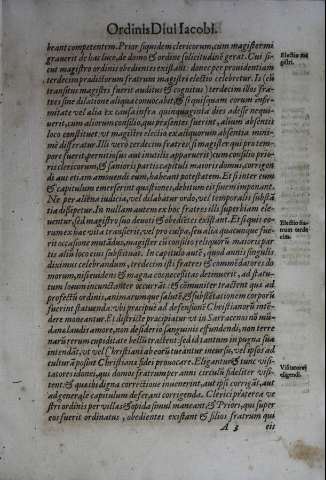 Ordinis Diui Iacobi.
beant competentem. Prior siquidem clericorum, cum magister mi
grauerit de hac luce, de domo & ordine solicitudinē gerat. Cui si-
cut magistro ordinis obedientes existant: donec per prouidentiam
terdecim prædictorum fratrum magistri electio celebretur. Is (cū
transitus magistri fuerit auditus & cognitus) terdecim illos fra-
tres sine dilatione aliqua conuocabit, & si quisquam eorum infir-
mitate vel alia ex causa infra quinquaginta dies adesse nequi-
uerit, cum aliorum consilio, qui præsentes fuerint, alium absentis
loco constituet vt magistri electio ex aliquorum absentia mini-
mè differatur. Illi verò terdecim fratres, si magister qui pro tem-
pore fuerit, pernitiosus aut inutilis apparuerit) cum consilio prio-
ris clericorum, & sanioris partis capituli maioris domus, corrigē-
di aut etiam amouendi eum, habeant potestatem. Et si inter eum
& capitulum emerserint quæstiones, debitum eis finem imponant.
Ne per aliena iudicia, vel dilabatur ordo, vel temporalis substā
tia dissipetur. In nullam autem ex hoc fratres illi superbiam ele-
uentur, sed magistro suo deuoti & obedientes existāt. Et si quis eo-
rum ex hac vita transierit, vel pro culpa, seu alia quacunque fue-
rit occasione mutādus, magister cū consilio reliquorū maioris par
tis aliū loco eius substituat. In capitulo autē, quod annis singulis
diximus celebrandum, terdecim isti fratres & commēdatores do
morum, nisi euidens & magna cognecessitas detinuerit, ad statu-
tum locum incunctanter occurrāt: & cōmuniter tractent quæ ad
profectū ordinis, animarumque salutē & substētationem corporū
fuerint statuenda: vbi præcipuè ad defensionē Christianorū intē-
dere moneantur. Et districtè præcipiatur vt in Sarracenos nō mū
danæ laudis amore, non desiderio sanguinis effundendi, non terre
narū rerum cupiditate bella tractent: sed id tantum in pugna sua
intendāt, vt vel Christianos ab eorū tueantur incursu, vel ipsos ad
culturā possint Christianæ fidei prouocare. Eligantur & tunc visi-
tatores idonei, qui domos fratrum per anni circulū fideliter visi-
tent: & quæ ibi digna correctione inuenerint, aut ipsi corrigāt, aut
ad generale capitulum deferant corrigenda. Clerici præterea ve
stri ordinis per villas & opida simul maneant, & Priori, qui super
eos fuerit ordinatus, obedientes existant & filios fratrum qui
A 3 eis
Electio ma
gistri.
Electio fra-
trum terde
cim.
Visitatores
eligendi.